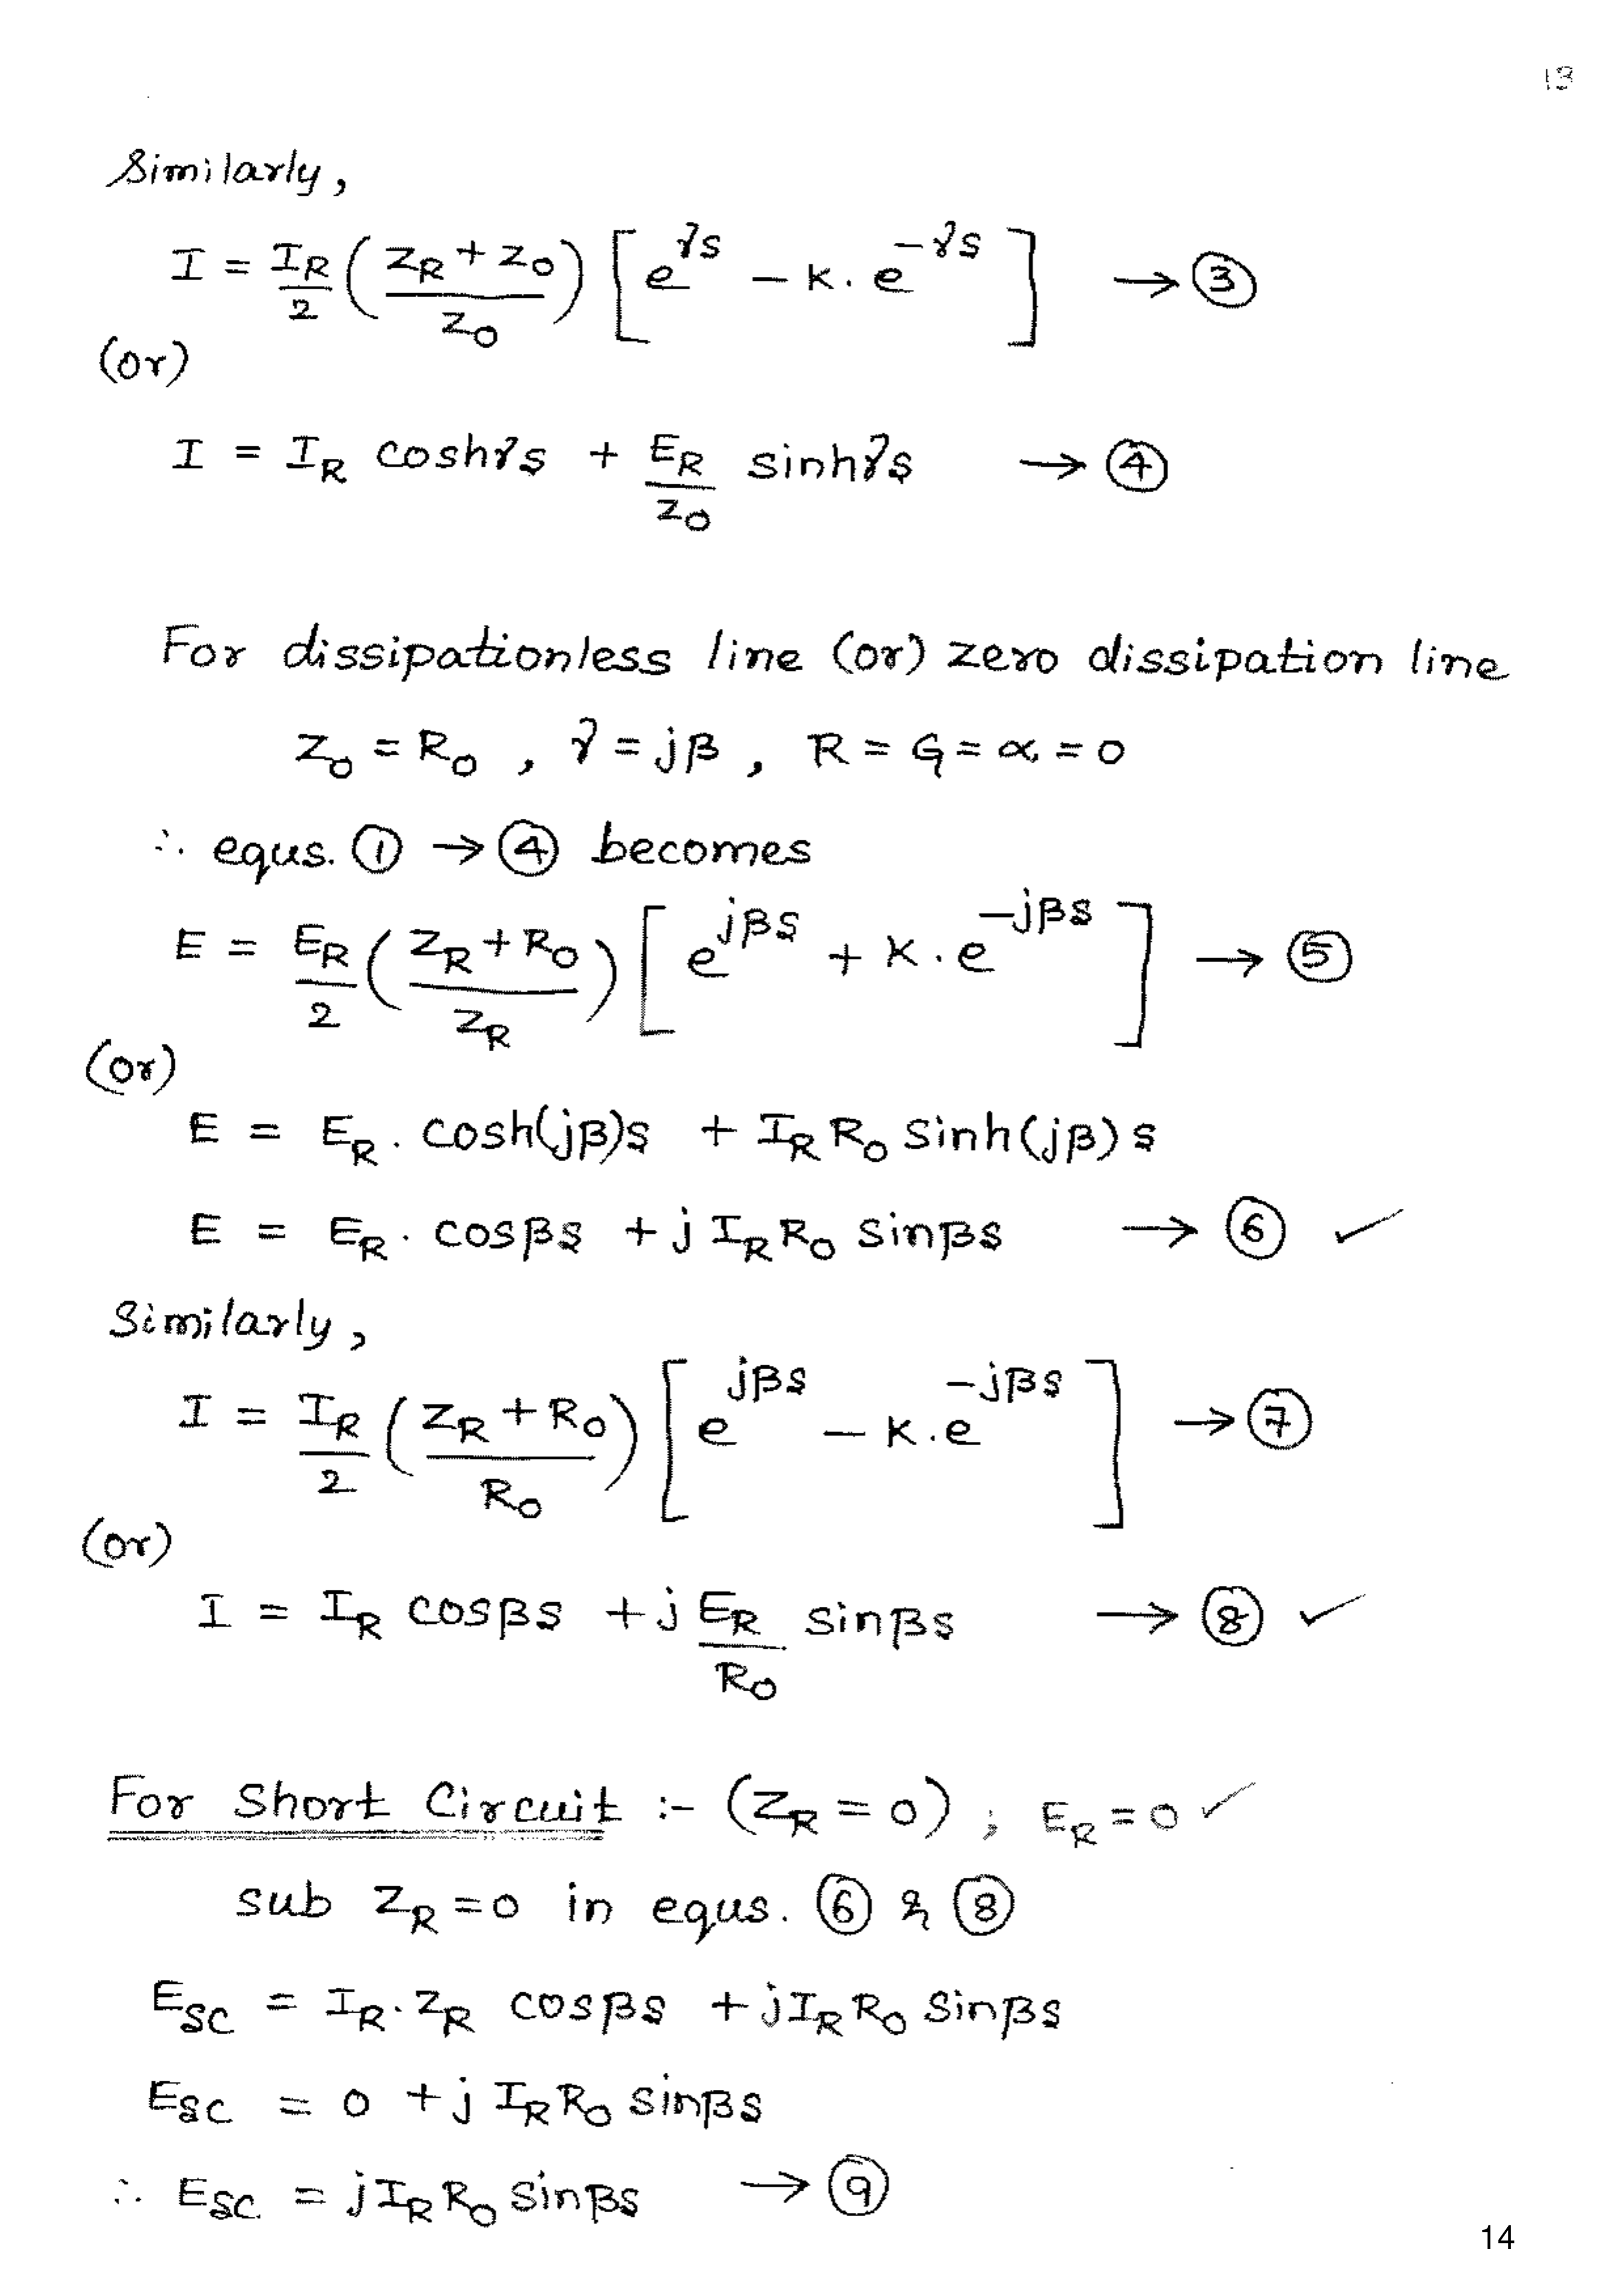 13
Similarly,
I = I_R/2 ( (Z_R + Z_0)/Z_0 ) [ e^{γs} − K. e^{−γs} ] → ③
(or)
I = I_R coshγs + E_R/Z_0 sinhγs → ④
For dissipationless line (or) zero dissipation line
Z_0 = R_0 , γ = jβ , R = G = α = 0
∴ equs. ① → ④ becomes
E = E_R/2 ( (Z_R + R_0)/Z_R ) [ e^{jβs} + K. e^{−jβs} ] → ⑤
(or)
E = E_R . cosh(jβ)s + I_R R_0 sinh(jβ) s
E = E_R . cosβs + j I_R R_0 sinβs → ⑥ ✓
Similarly,
I = I_R/2 ( (Z_R + R_0)/R_0 ) [ e^{jβs} − K. e^{−jβs} ] → ⑦
(or)
I = I_R cosβs + j E_R/R_0 sinβs → ⑧ ✓
For Short Circuit :- (Z_R = 0) ; E_R = 0 ✓
sub Z_R = 0 in equs. ⑥ & ⑧
E_SC = I_R . Z_R cosβs + j I_R R_0 sinβs
E_SC = 0 + j I_R R_0 sinβs
∴ E_SC = j I_R R_0 sinβs → ⑨
14